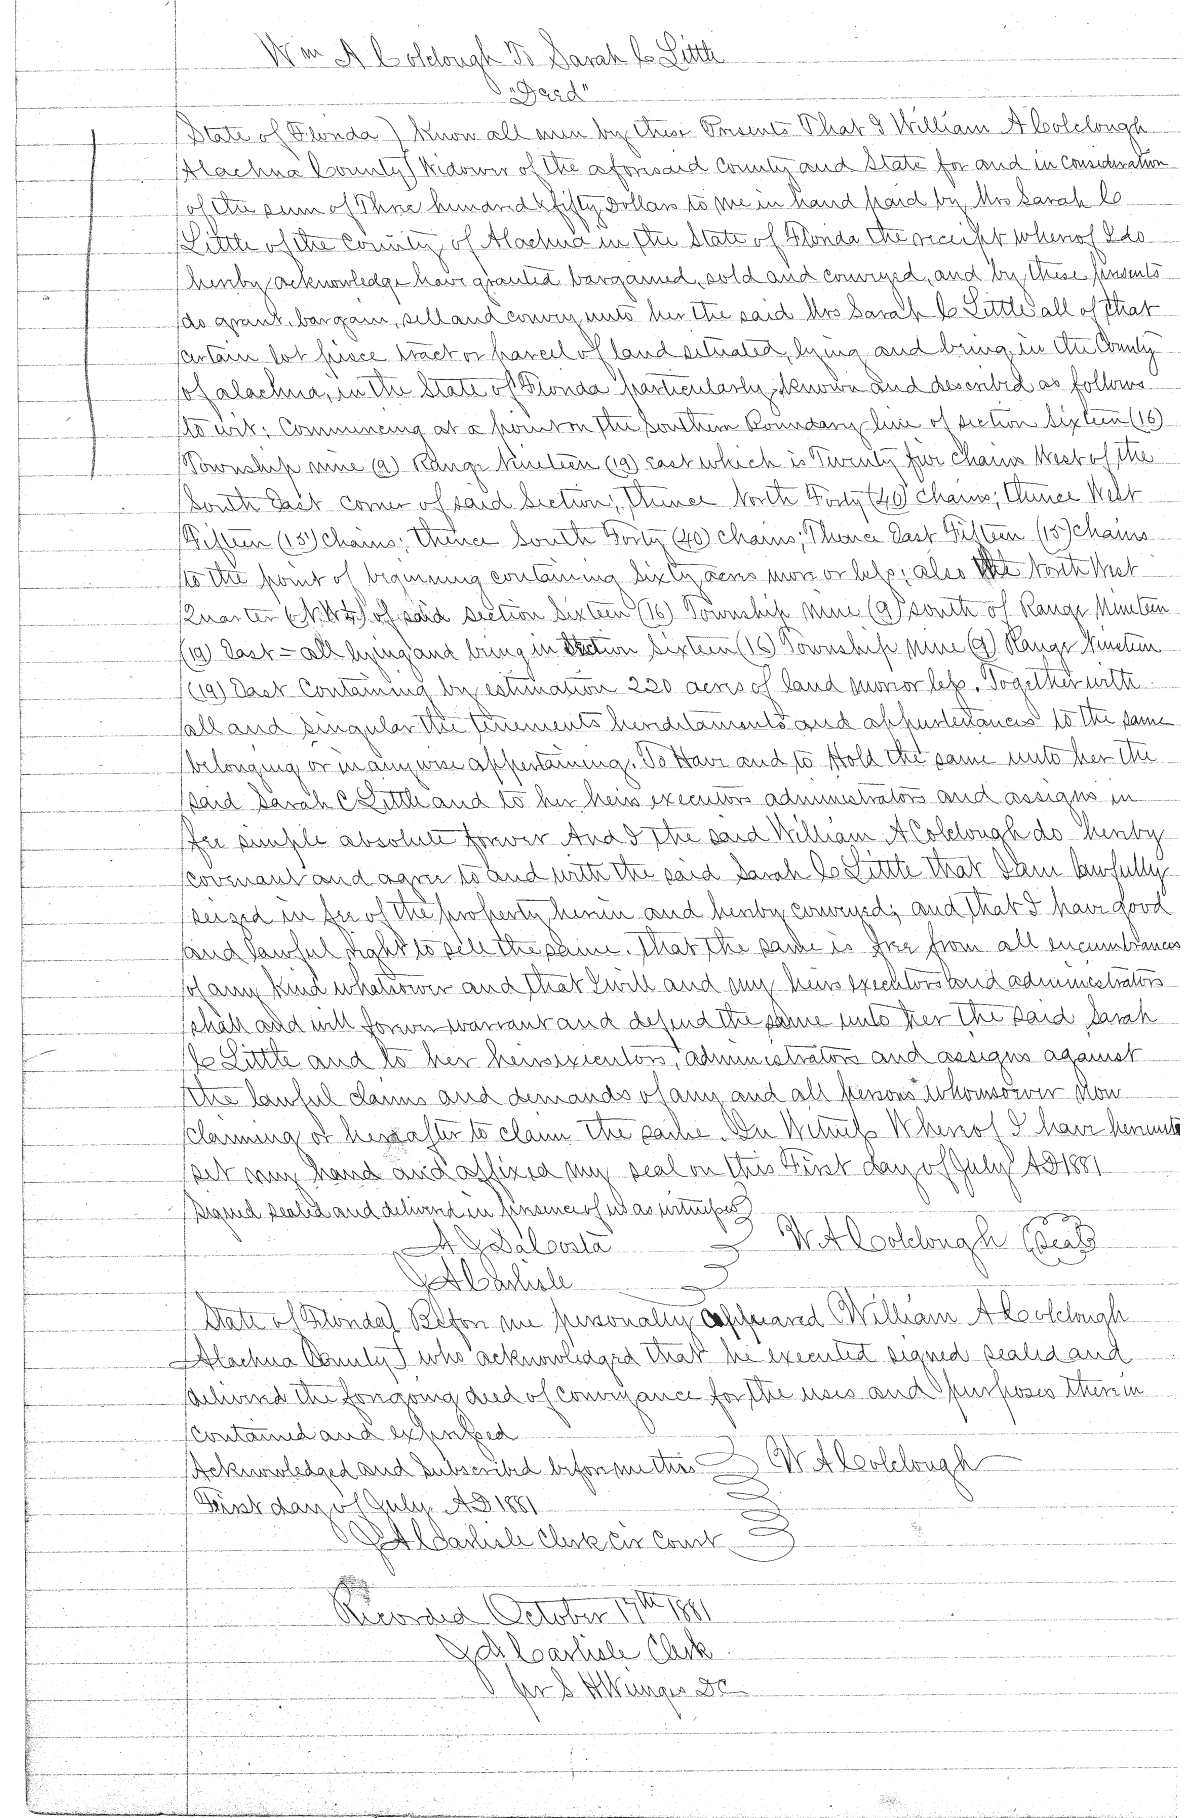 Wm A Colclough To Sarah C Little
"Deed"
State of Florida } Know all men by these Presents That I William A Colclough
Alachua County } Widower of the aforesaid County and State for and in consideration
of the sum of Three hundred & fifty Dollars to me in hand paid by Mrs Sarah C
Little of the County of Alachua in the State of Florida the receipt whereof I do
hereby acknowledge have granted bargained, sold and conveyed, and by these presents
do grant, bargain, sell and convey unto her the said Mrs Sarah C Little all of that
certain lot piece tract or parcel of land situated, lying and being in the County
of Alachua, in the State of Florida particularly known and described as follows
to wit; Commencing at a point on the Southern Boundary line of section Sixteen (16)
Township nine (9) Range Nineteen (19) East which is Twenty five Chains West of the
South East corner of said Section; Thence North Forty (40) chains; thence West
Fifteen (15) Chains; thence South Forty (40) chains; Thence East Fifteen (15) chains
to the point of beginning containing Sixty acres more or less; also the North West
Quarter (N.W¼) of said section Sixteen (16) Township nine (9) south of Range Nineteen
(19) East = all lying and being in Section Sixteen (16) Township Nine (9) Range Nineteen
(19) East Containing by estimation 220 acres of land more or less. Together with
all and singular the tenements hereditaments and appurtenances to the same
belonging or in any wise appertaining. To Have and to Hold the same unto her the
said Sarah C Little and to her heirs executors administrators and assigns in
fee simple absolute forever And I the said William A Colclough do hereby
covenant and agree to and with the said Sarah C Little that I am lawfully
seized in fee of the property herein and hereby conveyed; and that I have good
and lawful right to sell the same. That the same is free from all encumbrances
of any kind whatsoever and that I will and my heirs executors and administrators
shall and will forever warrant and defend the same unto her the said Sarah
C Little and to her heirs executors, administrators and assigns against
the lawful claims and demands of any and all persons whomsoever Now
claiming or hereafter to claim the same. In Witness Whereof I have hereunto
set my hand and affixed my seal on this First day of July A D 1881
Signed sealed and delivered in presence of us as witnesses
A J DaCosta W A Colclough (Seal)
J A Carlisle
State of Florida } Before me personally appeared William A Colclough
Alachua County } who acknowledged that he executed signed sealed and
delivered the foregoing deed of conveyance for the uses and purposes therein
contained and expressed
Acknowledged and Subscribed before me this W A Colclough
First day of July A D 1881
J A Carlisle Clerk Cir Court
Recorded October 17th 1881
J A Carlisle Clerk
per S H Wienges DC